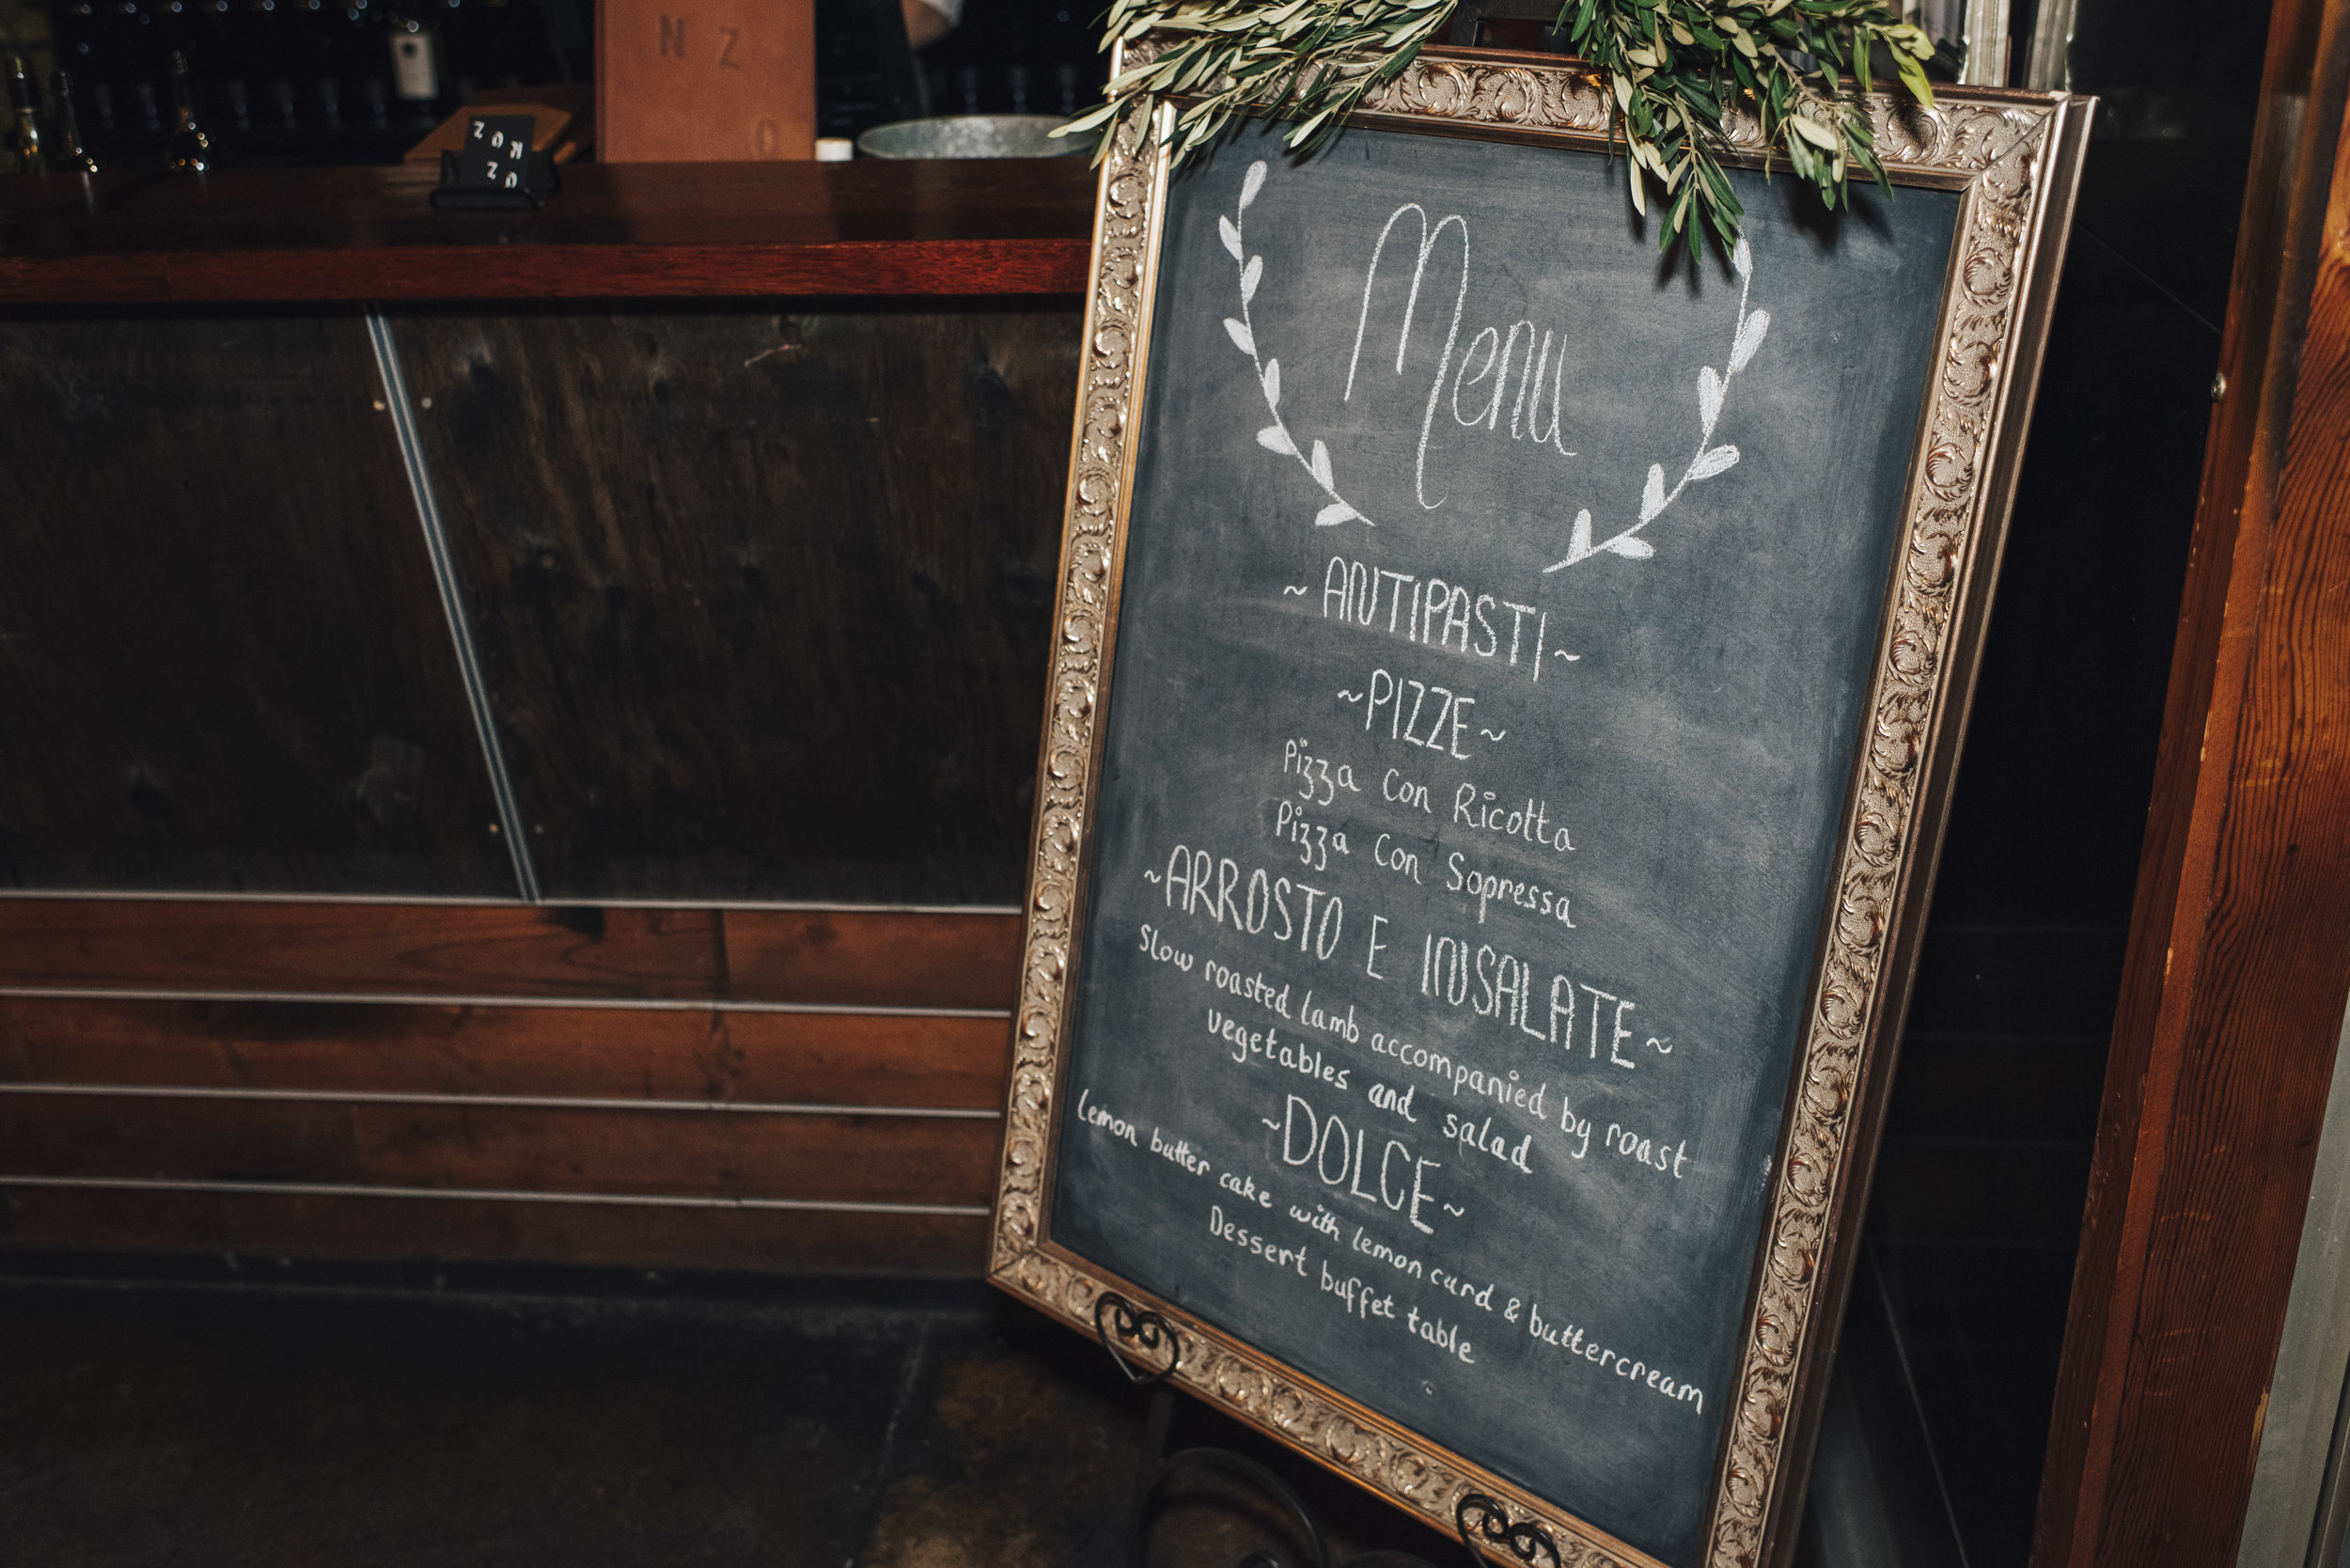 N Z
O
Menu
~ ANTIPASTI ~
~PIZZE~
Pizza Con Ricotta
Pizza Con Sopressa
~ARROSTO E INSALATE~
Slow roasted lamb accompanied by roast
vegetables and salad
~DOLCE~
Lemon butter cake with lemon curd & buttercream
Dessert buffet table